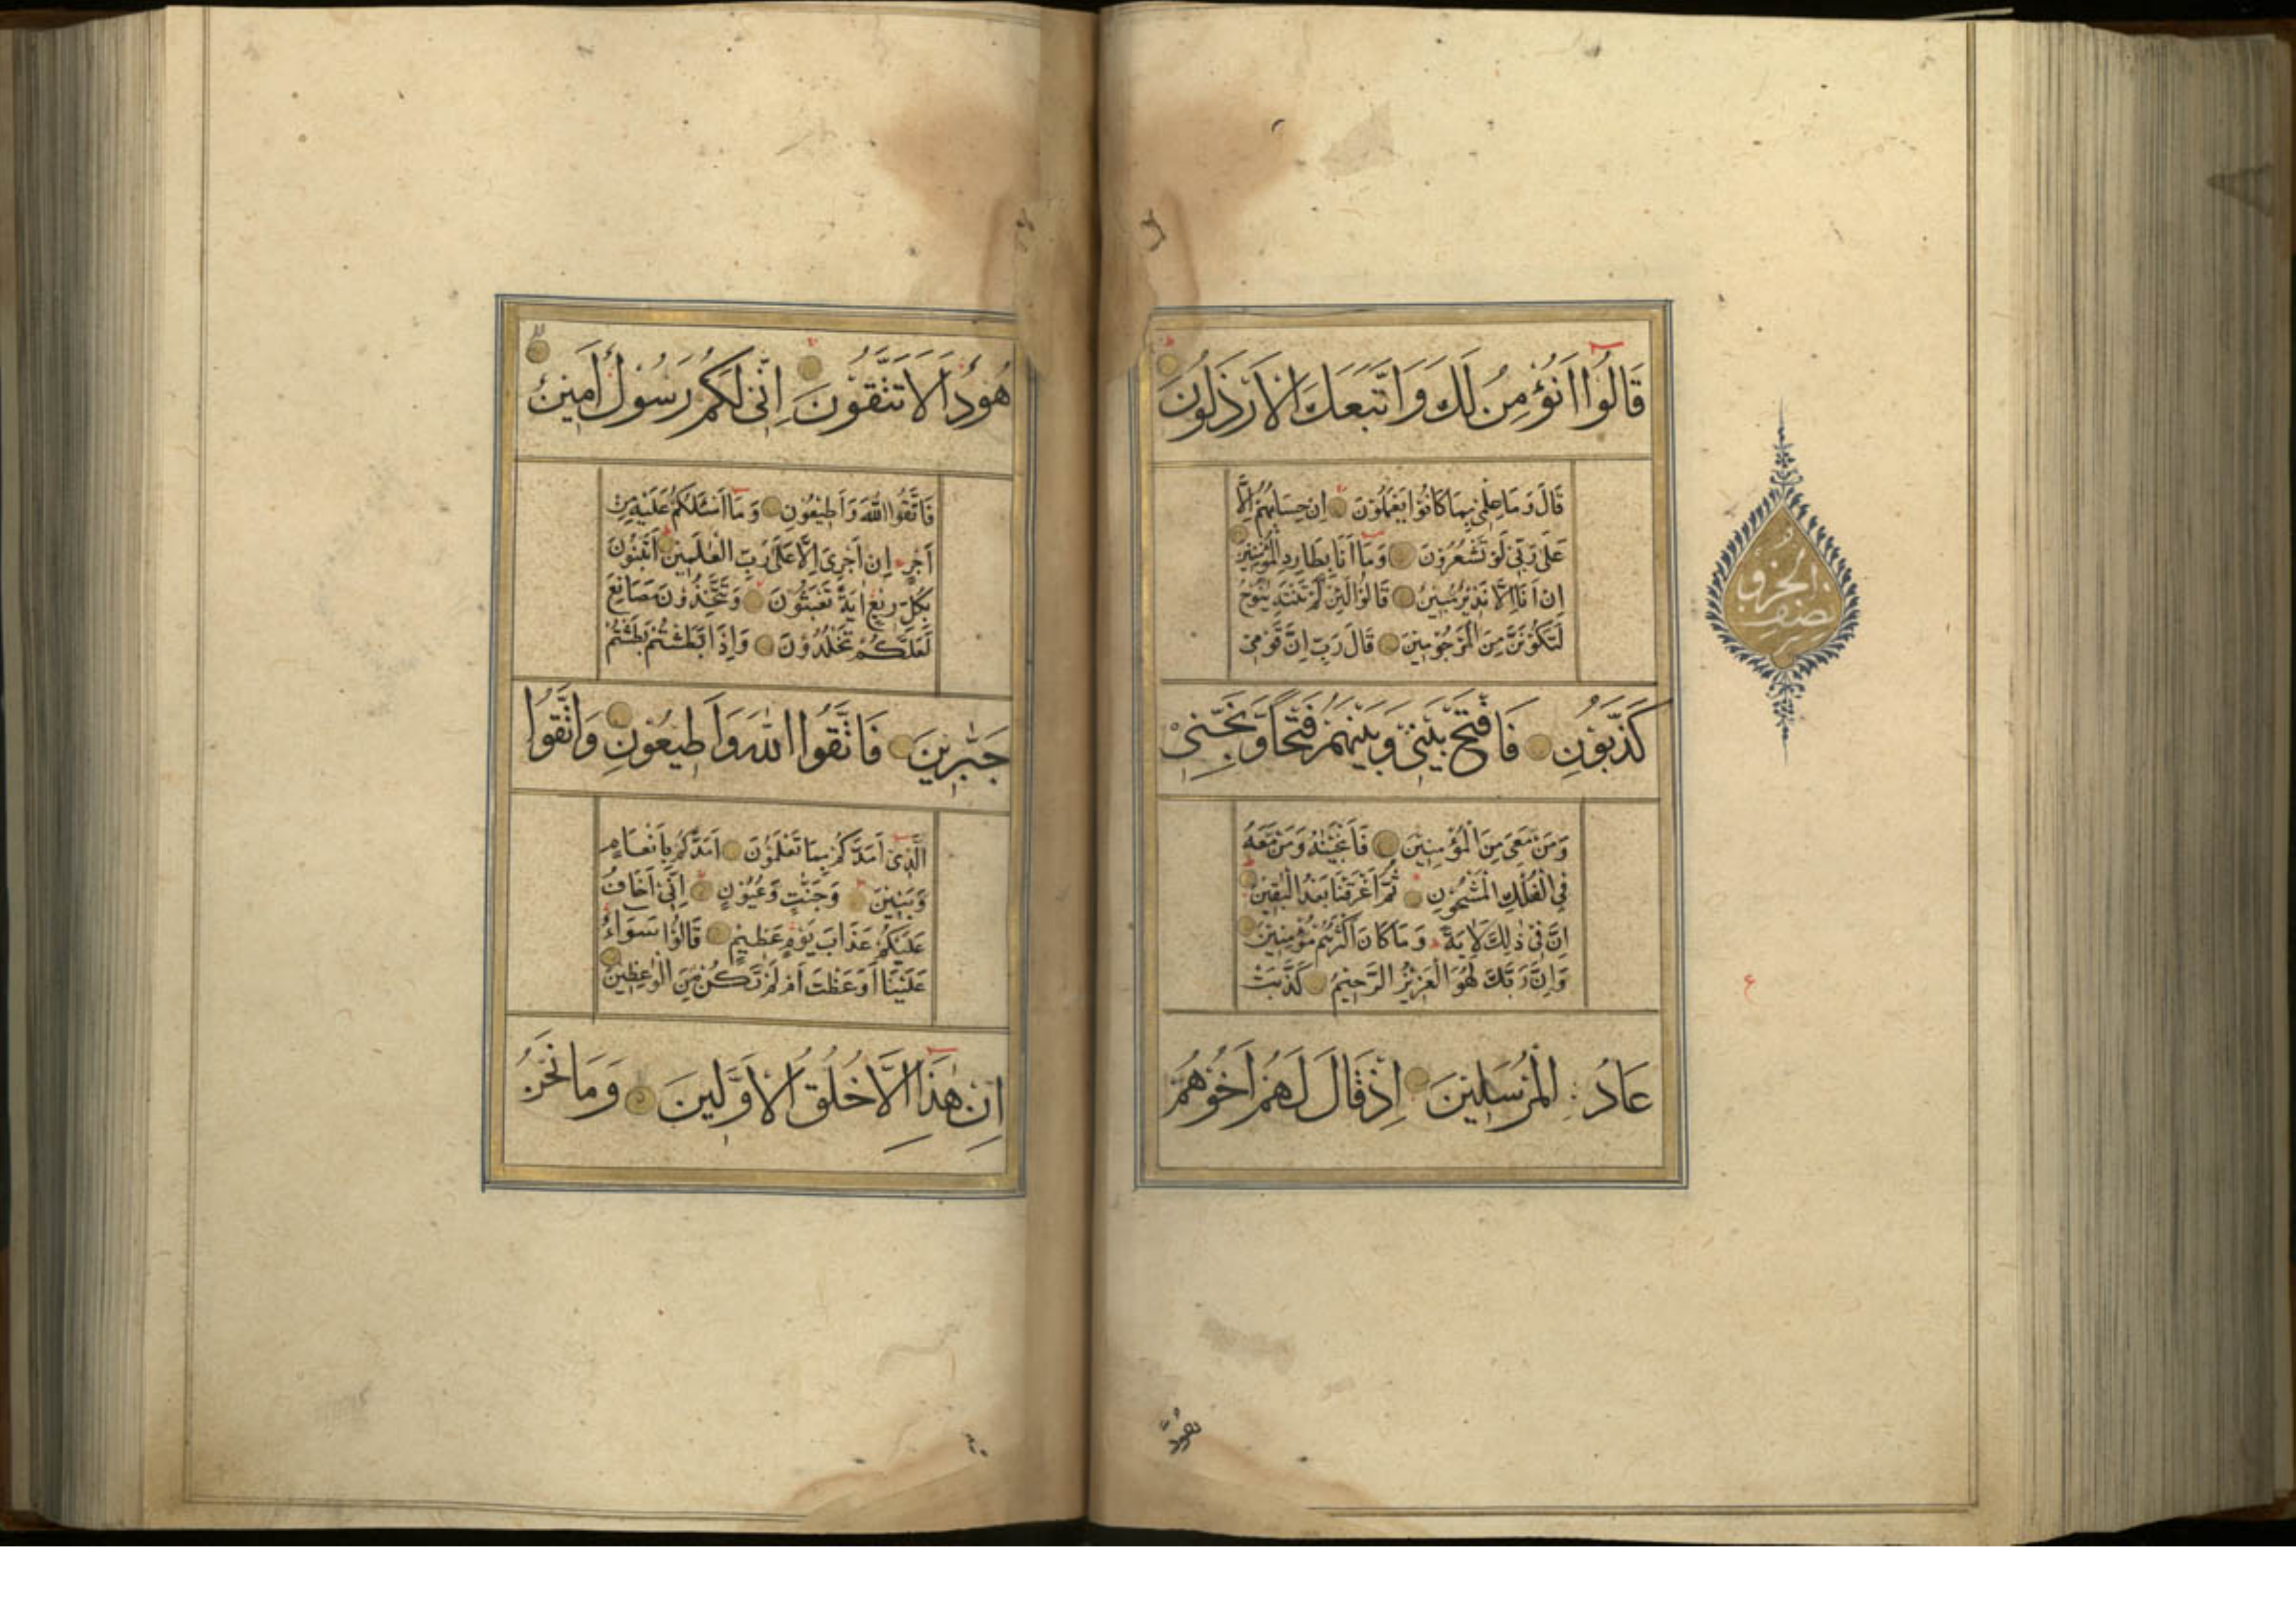 قَالُوا اَنُؤْمِنُ لَكَ وَاتَّبَعَكَ الْاَرْذَلُونَ
قَالَ وَمَا عِلْمِى بِمَا كَانُوا يَعْمَلُونَ اِنْ حِسَابُهُمْ اِلَّا
عَلَى رَبِّى لَوْ تَشْعُرُونَ وَمَا اَنَا بِطَارِدِ الْمُؤْمِنِينَ
اِنْ اَنَا اِلَّا نَذِيرٌ مُبِينٌ قَالُوا لَئِنْ لَمْ تَنْتَهِ يَنُوحُ
لَتَكُونَنَّ مِنَ الْمَرْجُومِينَ قَالَ رَبِّ اِنَّ قَوْمِى
كَذَّبُونِ فَافْتَحْ بَيْنِى وَبَيْنَهُمْ فَتْحًا وَنَجِّنِى
وَمَنْ مَعِىَ مِنَ الْمُؤْمِنِينَ فَاَنْجَيْنٰهُ وَمَنْ مَعَهُ
فِى الْفُلْكِ الْمَشْحُونِ ثُمَّ اَغْرَقْنَا بَعْدُ الْبٰقِينَ
اِنَّ فِى ذٰلِكَ لَاٰيَةً وَمَا كَانَ اَكْثَرُهُمْ مُؤْمِنِينَ
وَاِنَّ رَبَّكَ لَهُوَ الْعَزِيزُ الرَّحِيمُ كَذَّبَتْ
عَادُ الْمُرْسَلِينَ اِذْ قَالَ لَهُمْ اَخُوهُمْ
نصف الحزب
ع
هود
هُودٌ اَلَا تَتَّقُونَ اِنِّى لَكُمْ رَسُولٌ اَمِينٌ
فَاتَّقُوا اللّٰهَ وَاَطِيعُونِ وَمَا اَسْئَلُكُمْ عَلَيْهِ مِنْ
اَجْرٍ اِنْ اَجْرِىَ اِلَّا عَلَى رَبِّ الْعٰلَمِينَ اَتَبْنُونَ
بِكُلِّ رِيعٍ اٰيَةً تَعْبَثُونَ وَتَتَّخِذُونَ مَصَانِعَ
لَعَلَّكُمْ تَخْلُدُونَ وَاِذَا بَطَشْتُمْ بَطَشْتُمْ
جَبّٰرِينَ فَاتَّقُوا اللّٰهَ وَاَطِيعُونِ وَاتَّقُوا
الَّذِى اَمَدَّكُمْ بِمَا تَعْلَمُونَ اَمَدَّكُمْ بِاَنْعَامٍ
وَبَنِينَ وَجَنّٰتٍ وَعُيُونٍ اِنِّى اَخَافُ
عَلَيْكُمْ عَذَابَ يَوْمٍ عَظِيمٍ قَالُوا سَوَاءٌ
عَلَيْنَا اَوَعَظْتَ اَمْ لَمْ تَكُنْ مِنَ الْوٰعِظِينَ
اِنْ هٰذَا اِلَّا خُلُقُ الْاَوَّلِينَ وَمَا نَحْنُ